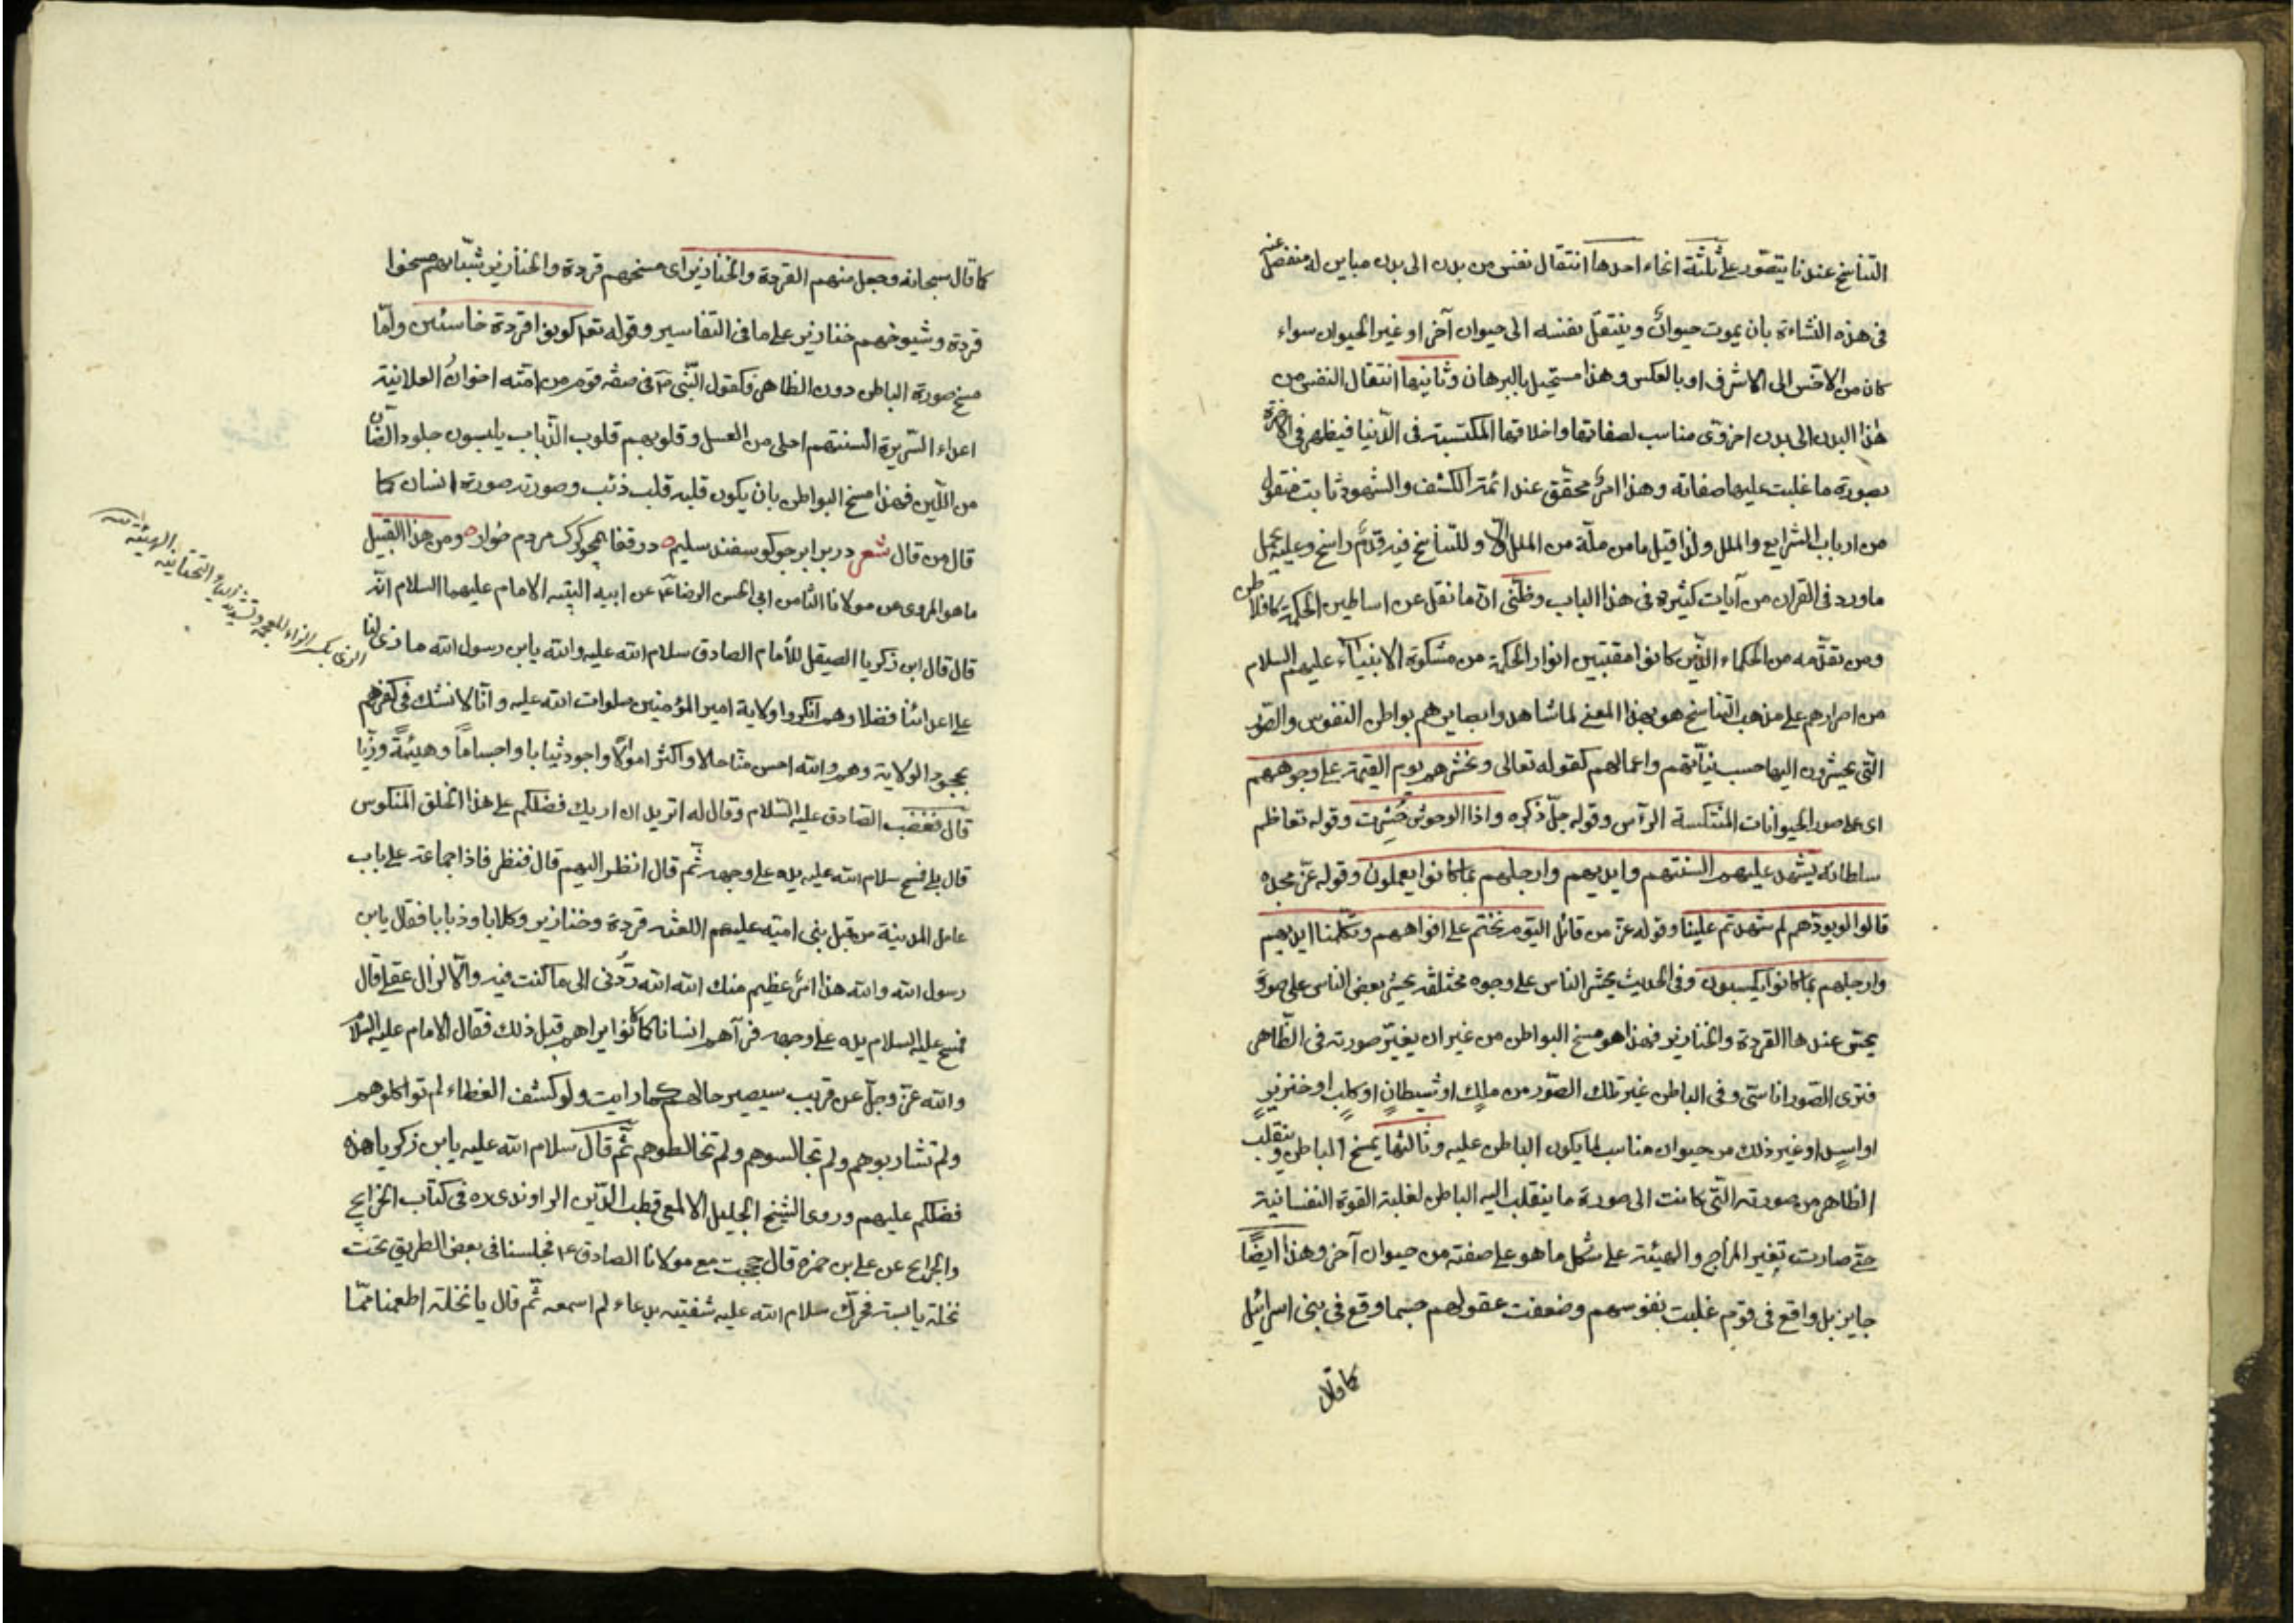 التناسخ عندنا يتصّور على ثلثة انحاء احدها انتقال نفس من بدن الى بدن مباين له منفصل عنه
فى هذه النشاءة بان يموت حيوانٌ وينتقل نفسه الى حيوان آخر او غير الحيوان سواء
كان من الاخسّ الى الاشرف او بالعكس وهذا مستحيل بالبرهان وثانيها انتقال النفس من
هذا البدن الى بدن اخروّى مناسب لصفاتها واخلاقها المكتسبة فى الدّنيا فيظهر فى الاخرة
بصورة ما غلبت عليها صفاته وهذا امرٌ محقّق عند ائمّة الكشف والشهود ثابت منقول
من ارباب الشرايع والملل ولذا قيل ما من ملّة من الملل الّا وللتناسخ فيه قدمٌ راسخ وعليه يحمل
ما ورد فى القران من آيات كثيرة فى هذا الباب وظنّى انّ ما نقل عن اساطين الحكمة كافلاطن
ومن تقدّمه من الحكماء الذّين كانوا مقتبسين انوار الحكمة من مشكوة الانبيآء عليهم السلام
من اصرارهم على مذهب التّناسخ هو بهذا المعنى لما شاهدوا ببصايرهم بواطن النفوس والصّور
التّى يحشرون اليها حسب نيّاتهم واعمالهم كقوله تعالى ونحشرهم يوم القيمة على وجوههم
اى على صور الحيوانات المنتكسة الرآس وقوله جلّ ذكره واذا الوحوش حُشِرت وقوله تعاظم
سلطانه يشهد عليهم السنتهم وايديهم وارجلهم بما كانوا يعملون وقوله عزّ مجده
قالوا لجلودهم لم شهدتم علينا وقوله عزّ من قائل اليوم نختم على افواههم وتكلّمنا ايديهم
وارجلهم بما كانوا يكسبون وفى الحديث يحشر الناس على وجوه مختلفة يحشر بعض الناس على صورة
يحسن عندها القردة والخنازير فهذا هو مسخ البواطن من غير ان يغيّر صورته فى الظّاهر
فترى الصّور اناسىّ وفى الباطن غير تلك الصّور من ملكٍ او شيطانٍ او كلبٍ او خنزيرٍ
او اسدٍ او غير ذلك من حيوان مناسب لما يكون الباطن عليه وثالثها يمسخ الباطن وينقلب
الظاهر من صورته الّتى كانت الى صورة ما ينقلب اليه الباطن لغلبة القوة النفسانية
حتّى صارت تغير المزاج والهيئة على شكل ما هو على صفته من حيوان آخر وهذا ايضًا
جايز بل واقع فى قوم غلبت نفوسهم وضعفت عقولهم حسبما وقع فى بنى اسرائيل
كما قال
كما قال سبحانه وجعل منهم القردة والخنازير اى مسخهم قردة والخنازير شبّانهم مسخوا
قردة وشيوخهم خنازير على ما فى التفاسير وقوله تعا كونوا قردة خاسئين وامّا
مسخ صورة الباطن دون الظاهر فكقول النّبى ص فى صفة قوم من امّته اخوانُ العلانية
اعداء السّريرة السنتهم احلى من العسل وقلوبهم قلوب الذّباب يلبسون جلود الضّان
من اللّين فهذا مسخ البواطن بان يكون قلبه قلب ذئب وصورته صورة انسان كما
قال من قال شعر در برابر چو گوسفند سليم در قفا همچو گرگ مردم خوار ومن هذا القبيل
ما هو المروى عن مولانا الثامن ابى الحسن الرضا ع عن ابيه الامام عليهما السلام انّه
قال قال ابن ذكريا الصيقل للأمام الصادق سلام الله عليه والله يابن رسول الله ما نرى لنا
على اعدائنا فضلا وهم انكروا ولاية امير المؤمنين صلوات الله عليه وانّا لا نشك فى كفرهم
بجحود الولاية وهم والله احسن منّا حالا واكثر اموالًا واجود ثيابا واجسامًا وهيئةً وزيّا
قال فغضب الصادق عليه السّلام وقال له اتريد ان اريك فضلكم على هذا الخلق المنكوس
قال بلى فمسح سلام الله عليه يده على وجهه ثّم قال انظر اليهم قال فنظر فاذا جماعة على باب
عامل المدينة من قبل بنى اميّة عليهم اللعنة قردة وخنازير وكلابا وذبابا فقال يابن
رسول الله والله هذا امرٌ عظيم منك الله الله رُدّنى الى ما كنت فيه والّا لزال عقلى قال
فمسح عليه السلام يده على وجهه فرآهم انسانا كما كانوا يراهم قبل ذلك فقال الامام عليه السلا
والله عزّ وجلّ عن قريب سيصير حالهم كما رايت ولو كشف الغطاء لم تواكلوهم
ولم تشاربوهم ولم تجالسوهم ولم تخالطوهم ثّم قال سلام الله عليه يابن زكريا هذه
فضلكم عليهم وروى الشيخ الجليل الالمعى قطب الدّين الراوندى ره فى كتاب الخرايج
والجرايح عن على بن حمزه قال حججت مع مولانا الصادق ع فجلسنا فى بعض الطريق تحت
نخلة يابسة فحرّك سلام الله عليه شفتيه بدعاء لم اسمعه ثّم قال يا نخلة اطعمنا ممّا
الزى بكسر الزاء المعجمة وتشديد الياء التحتانية الهيئة